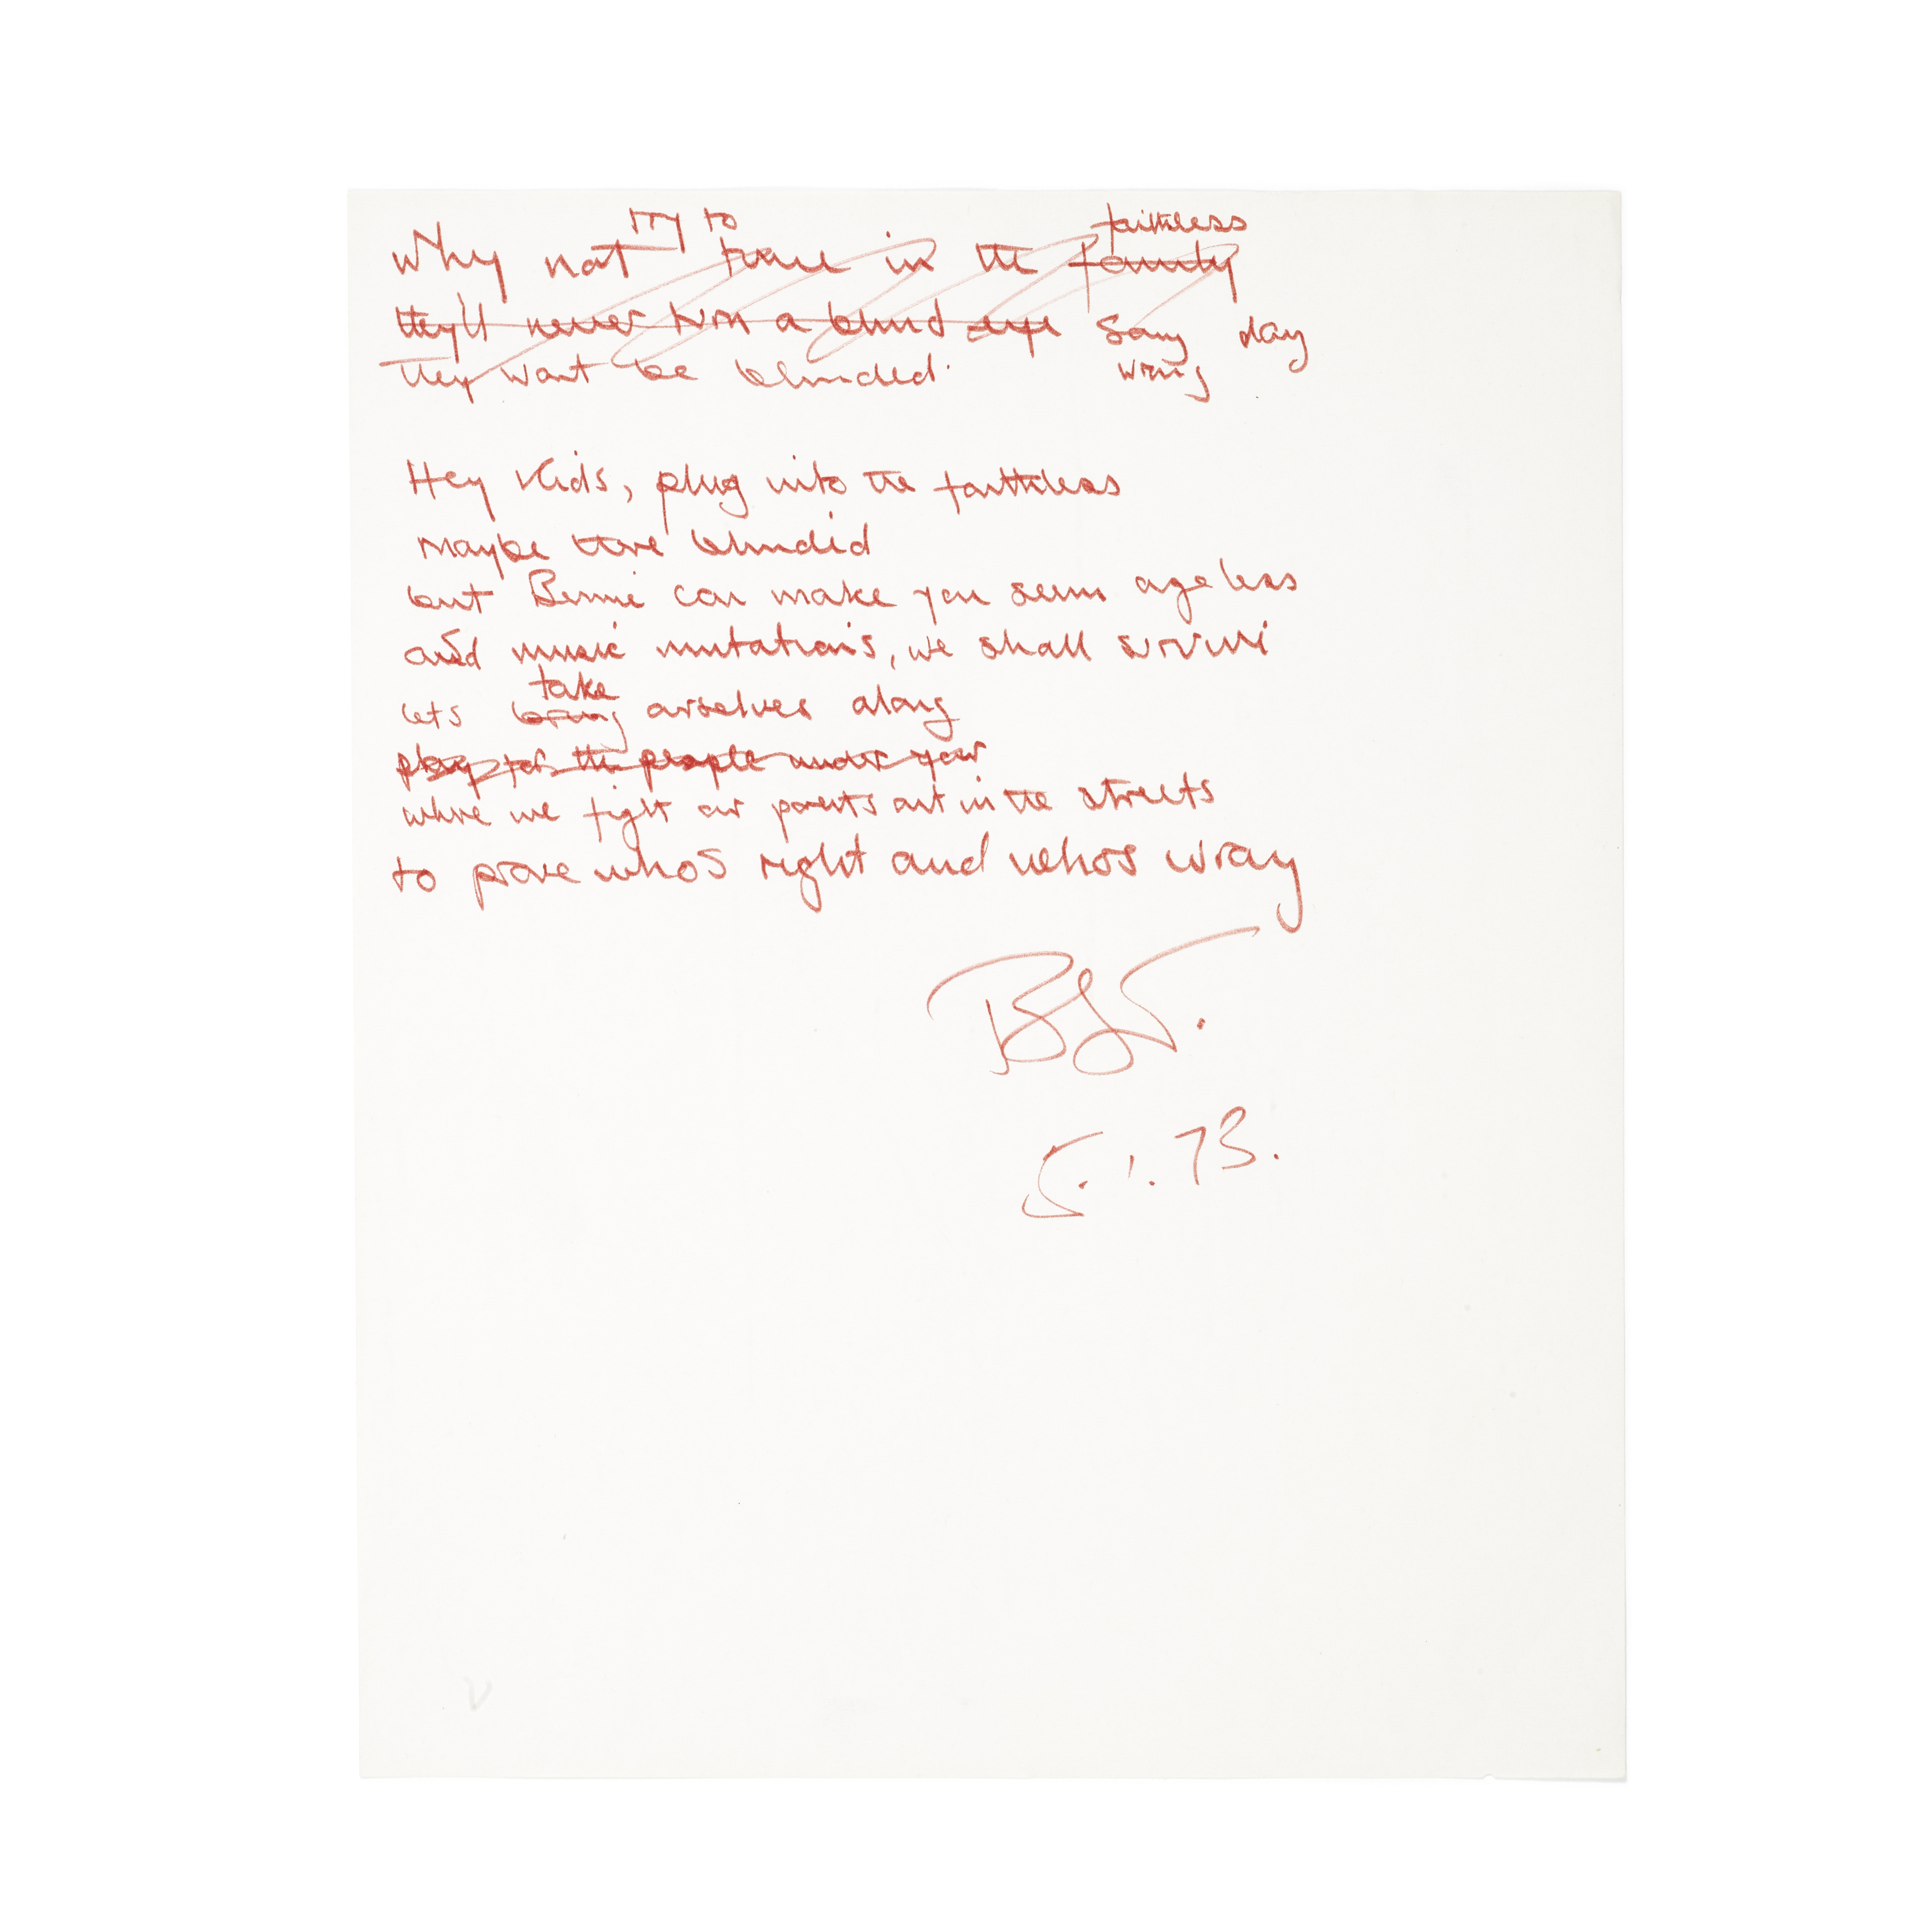 try to faithless
Why not have in the family
they'll never turn a blind eye Song day
They want be blinded. wrong
Hey Kids, plug into the faithless
maybe there blindid
but Bennie can make you seem ageless
and music mutations, we shall survive
take
lets bring ourselves along
play for the people under your
where we fight our parents out in the streets
to prove whos right and whos wrong
BJT.
5.1.73.